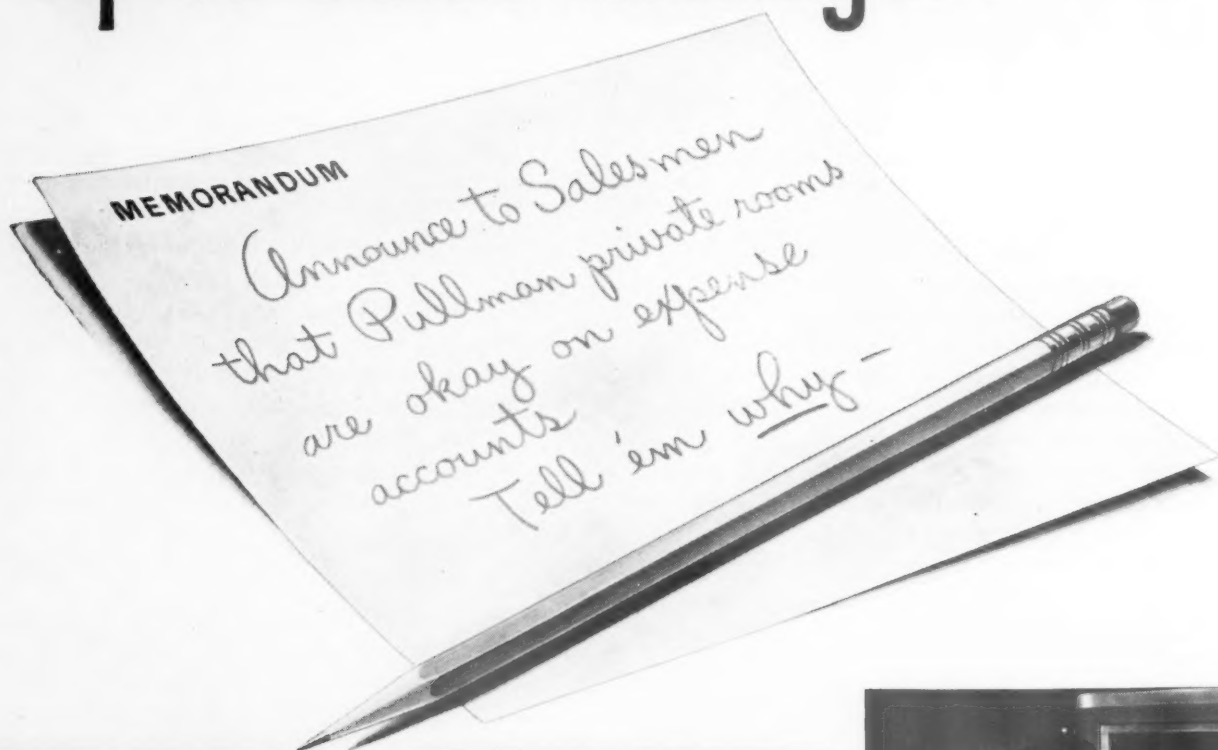 MEMORANDUM
Announce to Salesmen
that Pullman private rooms
are okay on expense
accounts
Tell 'em why –